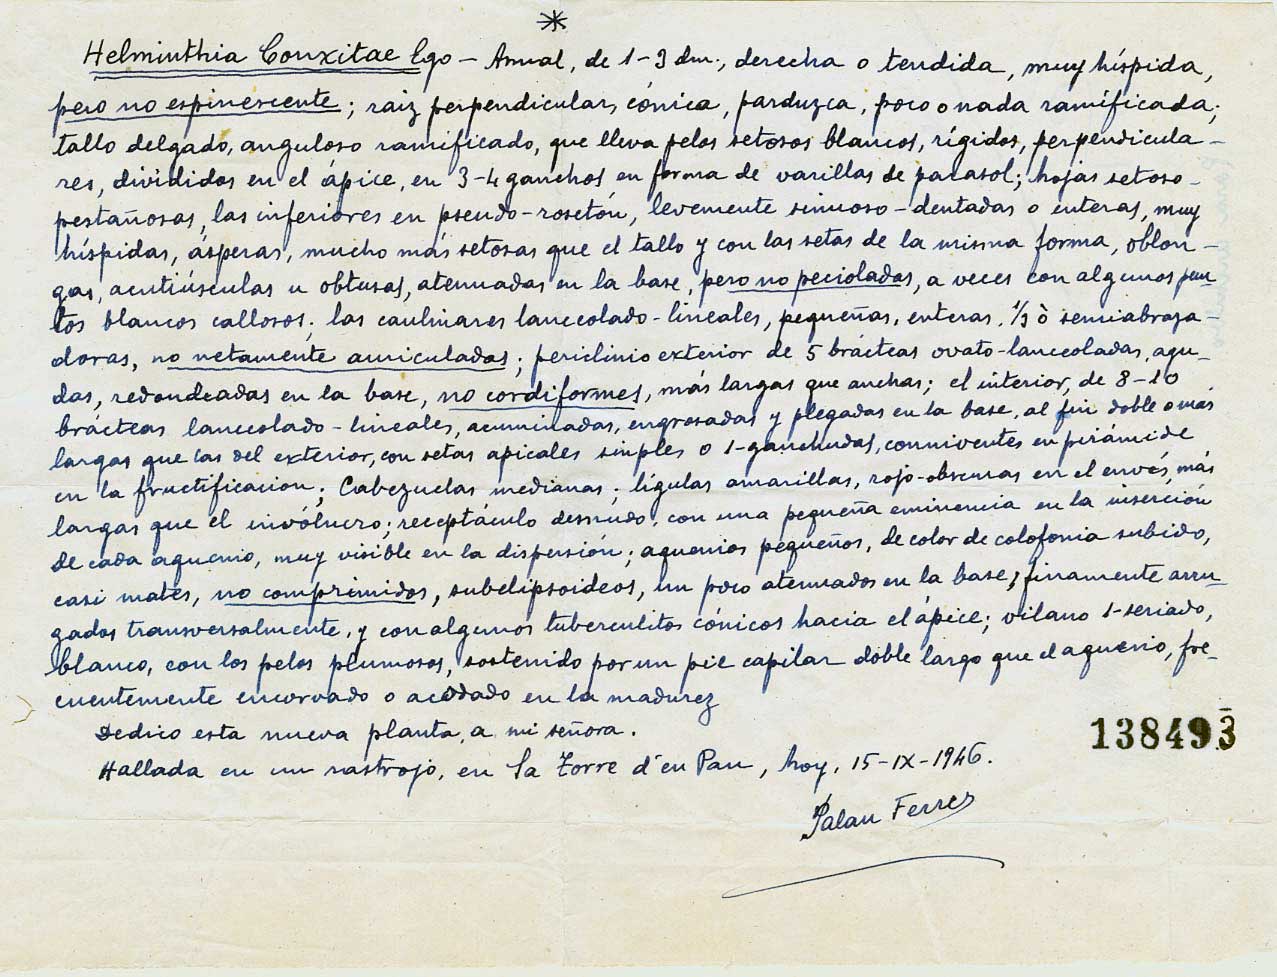 *
Helminthia Conxitae Ego – Anual, de 1-3 dm., derecha o tendida, muy híspida,
pero no espinescente; raiz perpendicular, cónica, parduzca, poco o nada ramificada;
tallo delgado, anguloso ramificado, que lleva pelos setosos blancos, rígidos, perpendicula-
res, divididos en el ápice, en 3-4 ganchos, en forma de varillas de parasol; hojas setoso-
pestañosas, las inferiores en pseudo-rosetón, levemente sinuoso-dentadas o enteras, muy
híspidas, ásperas, mucho más setosas que el tallo y con las setas de la misma forma, oblon-
gas, acutiúsculas u obtusas, atenuadas en la base, pero no pecioladas, a veces con algunos pun
tos blancos callosos; las caulinares lanceolado-lineales, pequeñas, enteras, 1/3 ò semiabraza-
doras, no netamente auriculadas; periclinio exterior de 5 brácteas ovato-lanceoladas, agu-
das, redondeadas en la base, no cordiformes, más largas que anchas; el interior, de 8-10
brácteas lanceolado-lineales, acuminadas, engrosadas y plegadas en la base, al fin doble o más
largas que las del exterior, con setas apicales simples o 1-ganchudas, conniventes en pirámide
en la fructificacion; Cabezuelas medianas; lígulas amarillas, rojo-obscuras en el envés, más
largas que el invólucro; receptáculo desnudo, con una pequeña eminencia en la inserción
de cada aquenio, muy visible en la dispersión; aquenios pequeños, de color de colofonia subido,
casi mates, no comprimidos, subelipsoideos, un poco atenuados en la base; finamente arru-
gados transversalmente, y con algunos tuberculitos cónicos hacia el ápice; vilano 1-seriado,
blanco, con los pelos plumosos, sostenido por un pie capilar doble largo que el aquenio, fre-
cuentemente encorvado o acodado en la madurez
Dedico esta nueva planta, a mi señora.
Hallada en un rastrojo, en Sa Torre d'en Pau, hoy, 15-IX-1946.
138493
Palau Ferrer